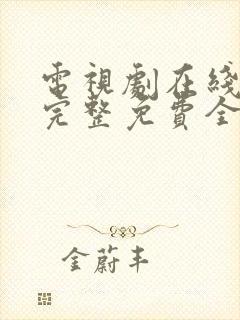 電視劇在綫
完整免費全
金蔚丰